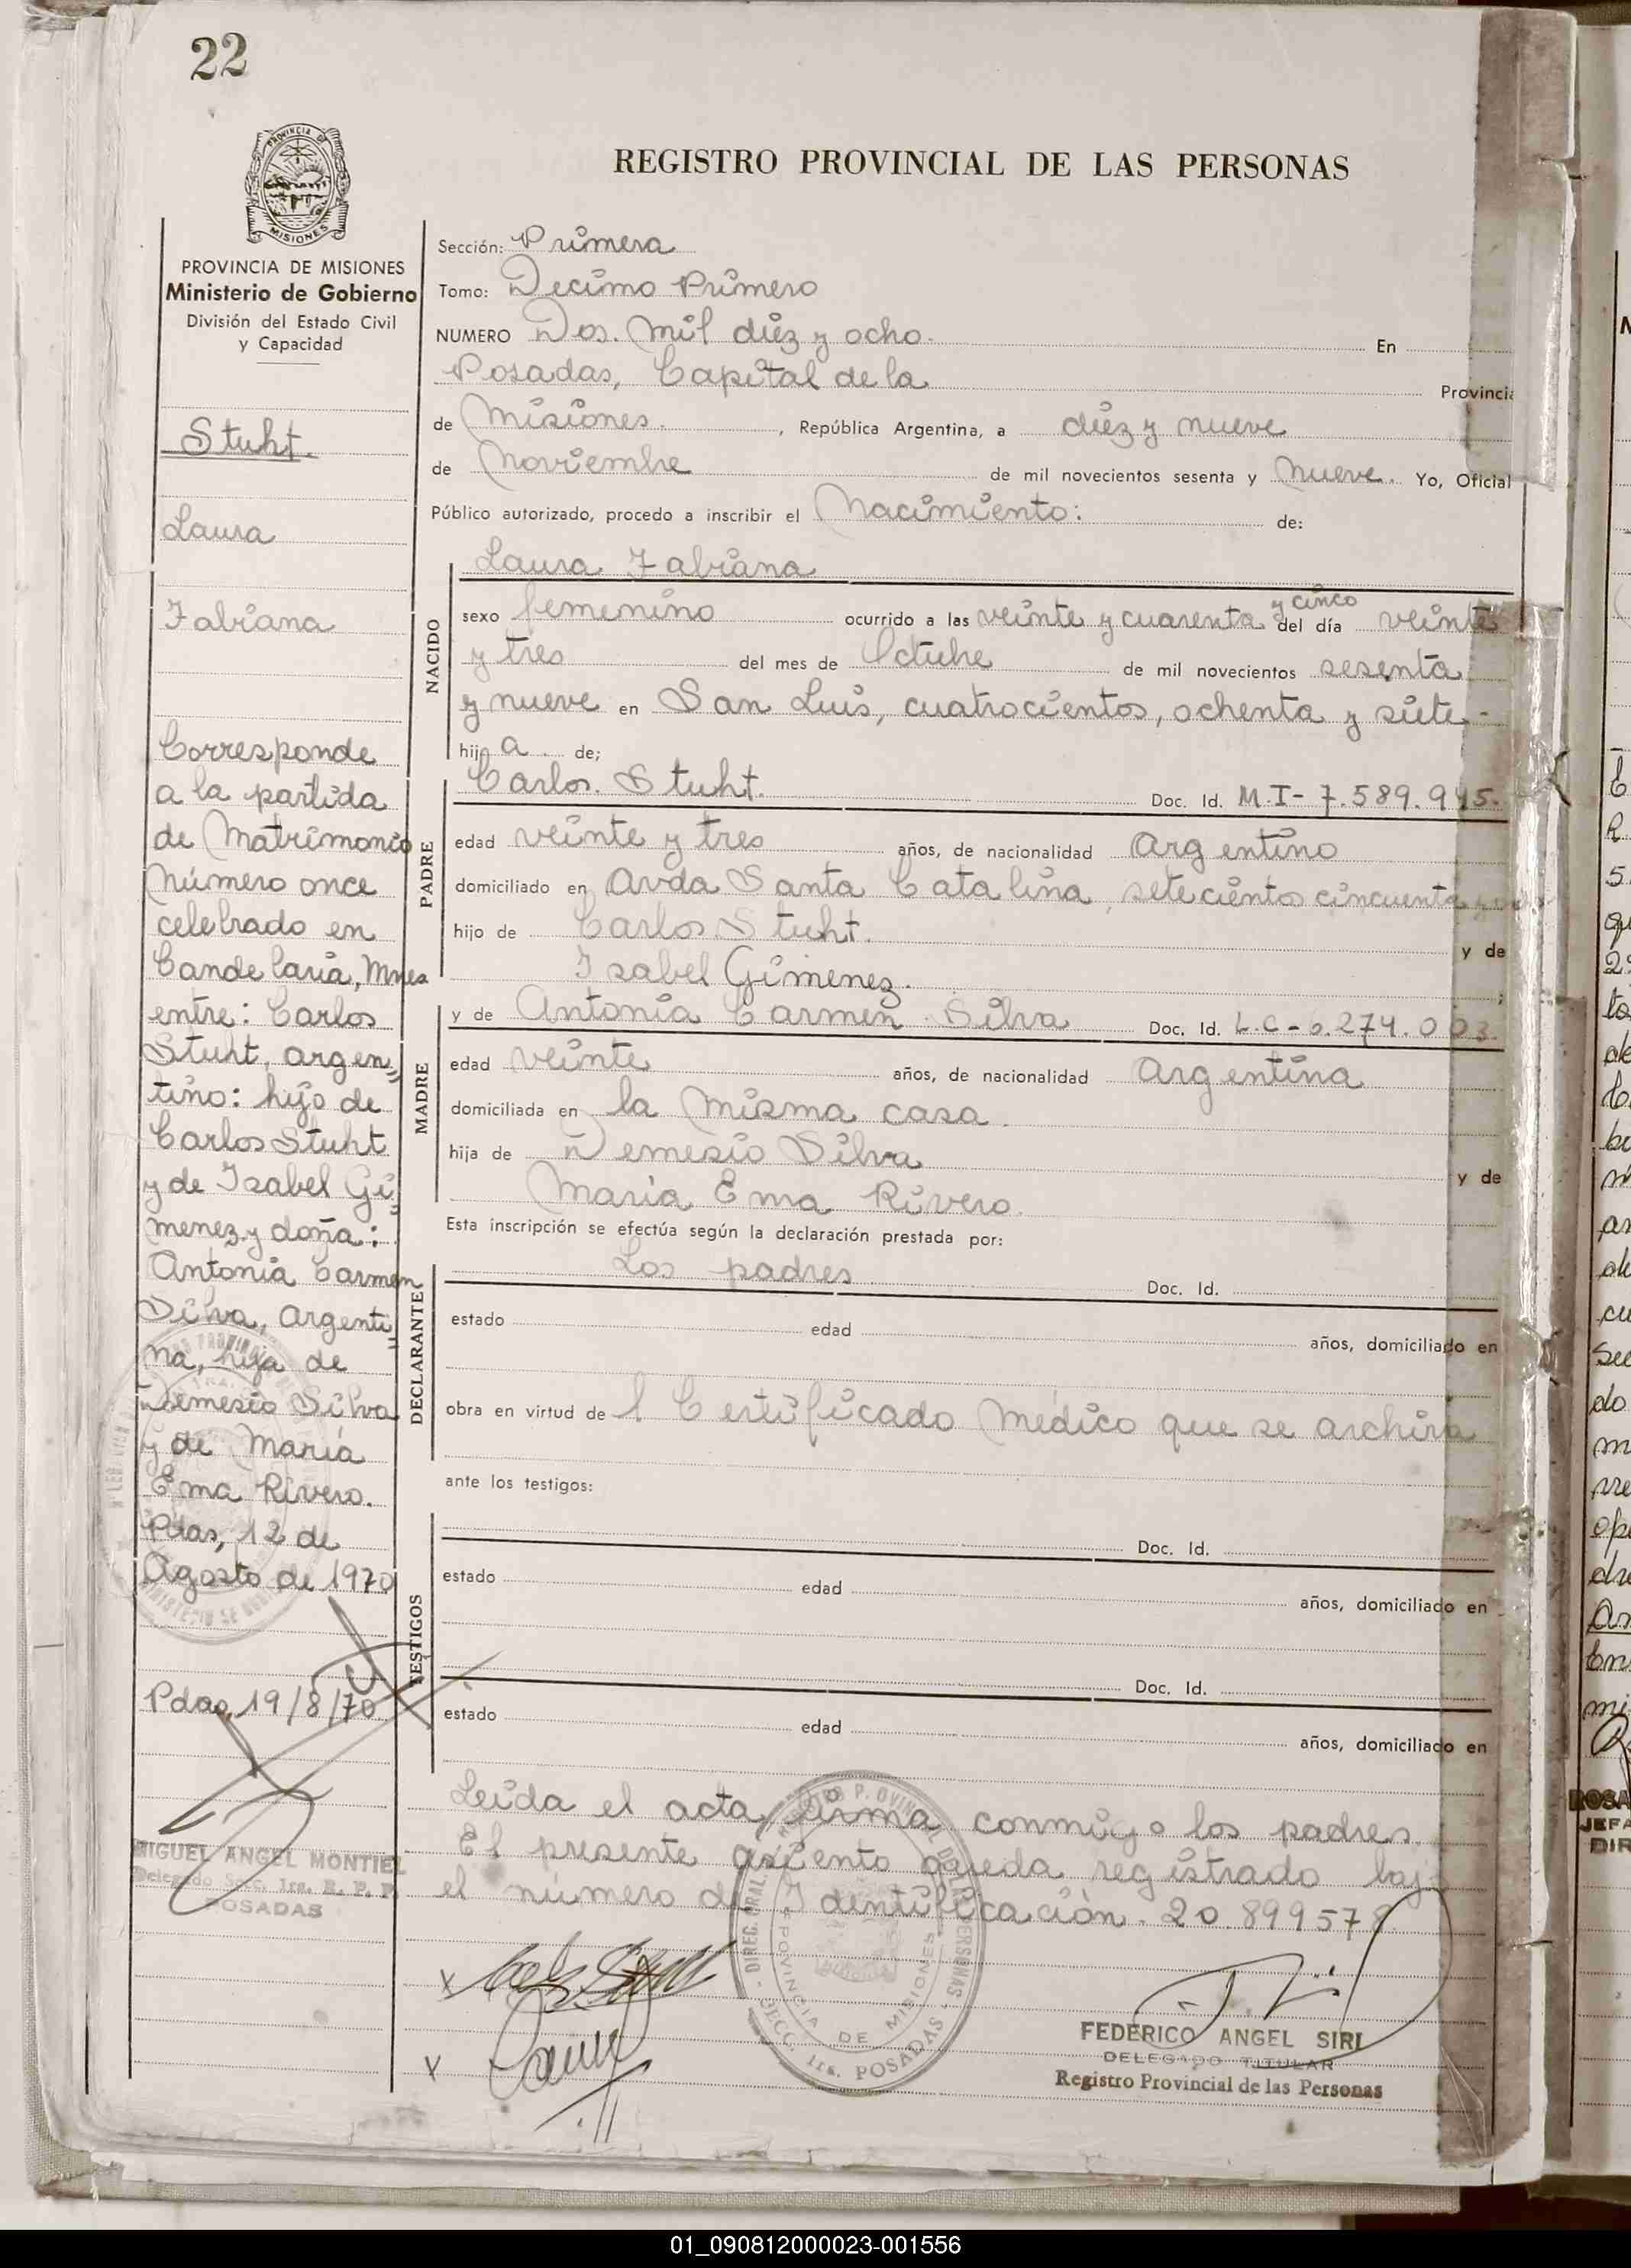 22
REGISTRO PROVINCIAL DE LAS PERSONAS
PROVINCIA DE MISIONES
Ministerio de Gobierno
División del Estado Civil
y Capacidad
Stuht.
Laura
Fabiana
Corresponde
a la partida
de Matrimonio
Número once
celebrado en
Candelaria, Mnes
entre: Carlos
Stuht, argen=
tino: hijo de
Carlos Stuht
y de Isabel Gi=
menez y doña:
Antonia Carmen
Silva, Argenti=
na, hija de
Nemesio Silva
y de María
Ema Rivero.
Pdas, 12 de
Agosto de 1970
Pdas, 19/8/70
MIGUEL ANGEL MONTIEL
Delegado Secc. 1ra. R. P. P.
POSADAS
Sección: Primera
Tomo: Decimo Primero
NUMERO Dos. mil diez y ocho. En
Posadas, Capital de la Provincia
de Misiones. , República Argentina, a diez y nueve
de Noviembre de mil novecientos sesenta y Nueve. Yo, Oficial
Público autorizado, procedo a inscribir el Nacimiento: de:
Laura Fabiana
NACIDO
sexo femenino ocurrido a las veinte y cuarenta y cinco del día veinte
y tres del mes de Octubre de mil novecientos sesenta
y nueve en San Luis, cuatrocientos, ochenta y siete -
hija de;
PADRE
Carlos. Stuht. Doc. Id. M.I- 7.589.945.
edad veinte y tres años, de nacionalidad Argentino
domiciliado en Avda Santa Catalina, setecientos cincuenta
hijo de Carlos Stuht. y de
Isabel Gimenez. ;
MADRE
y de Antonia Carmen Silva Doc. Id. L.C- 6.274.003.
edad veinte años, de nacionalidad Argentina
domiciliada en la misma casa.
hija de Nemesio Silva y de
María Ema Rivero.
Esta inscripción se efectúa según la declaración prestada por:
DECLARANTE
Los padres Doc. Id.
estado edad años, domiciliado en
obra en virtud de l Certificado Médico que se archiva
ante los testigos:
TESTIGOS
Doc. Id.
estado edad años, domiciliado en
Doc. Id.
estado edad años, domiciliado en
Leída el acta, firma conmigo los padres.
El presente asiento queda registrado bajo
el número de Identificación. 20.899578.
FEDERICO ANGEL SIRI
DELEGADO TITULAR
Registro Provincial de las Personas
01_090812000023-001556